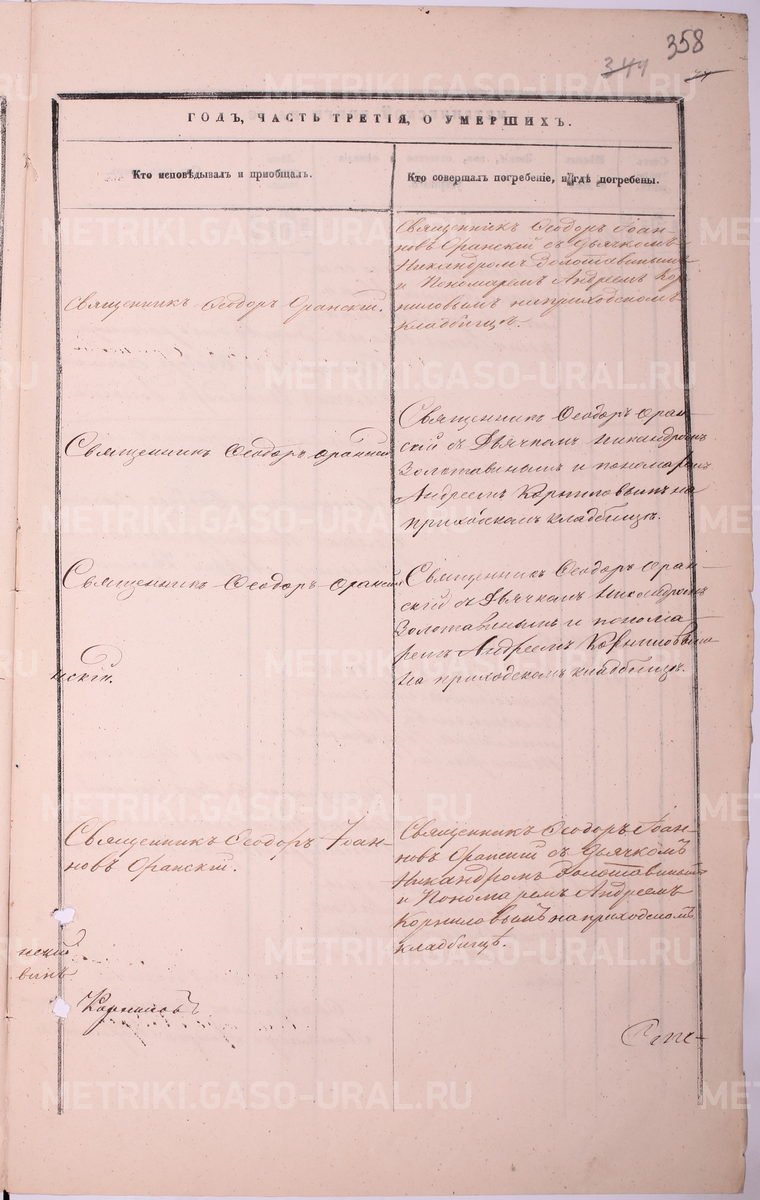 358
344
ГОДЪ, ЧАСТЬ ТРЕТІЯ, О УМЕРШИХЪ.
Кто исповѣдывалъ и пріобщалъ.
Кто совершалъ погребеніе, и гдѣ погребены.
Священникъ Ѳеодоръ Оранскій.
Священникъ Ѳеодоръ Іоан-
новъ Оранскій съ Дьячкомъ
Никандромъ Золотавинымъ
и Пономаремъ Андреемъ Кор-
ниловымъ на приходскомъ
кладбищѣ.
Священникъ Ѳеодоръ Оранскій
Священникъ Ѳеодоръ Оран-
скій съ Дьячкомъ Никандромъ
Золотавинымъ и пономаремъ
Андреемъ Корниловымъ на
приходскомъ кладбищѣ.
Священникъ Ѳеодоръ Оранскій
нскій.
Священникъ Ѳеодоръ Оран-
скій съ Дьячкомъ Никандромъ
Золотавинымъ и понома
ремъ Андреемъ Корниловымъ
на приходскомъ кладбищѣ.
Священникъ Ѳеодоръ Іоан-
новъ Оранскій.
Священникъ Ѳеодоръ Іоан-
новъ Оранскій съ Дьячкомъ
Никандромъ Золотавинымъ
и Пономаремъ Андреемъ
Корниловымъ на приходскомъ
кладбищѣ.
нскій
винъ
Корниловъ
METRIKI.GASO-URAL.RU